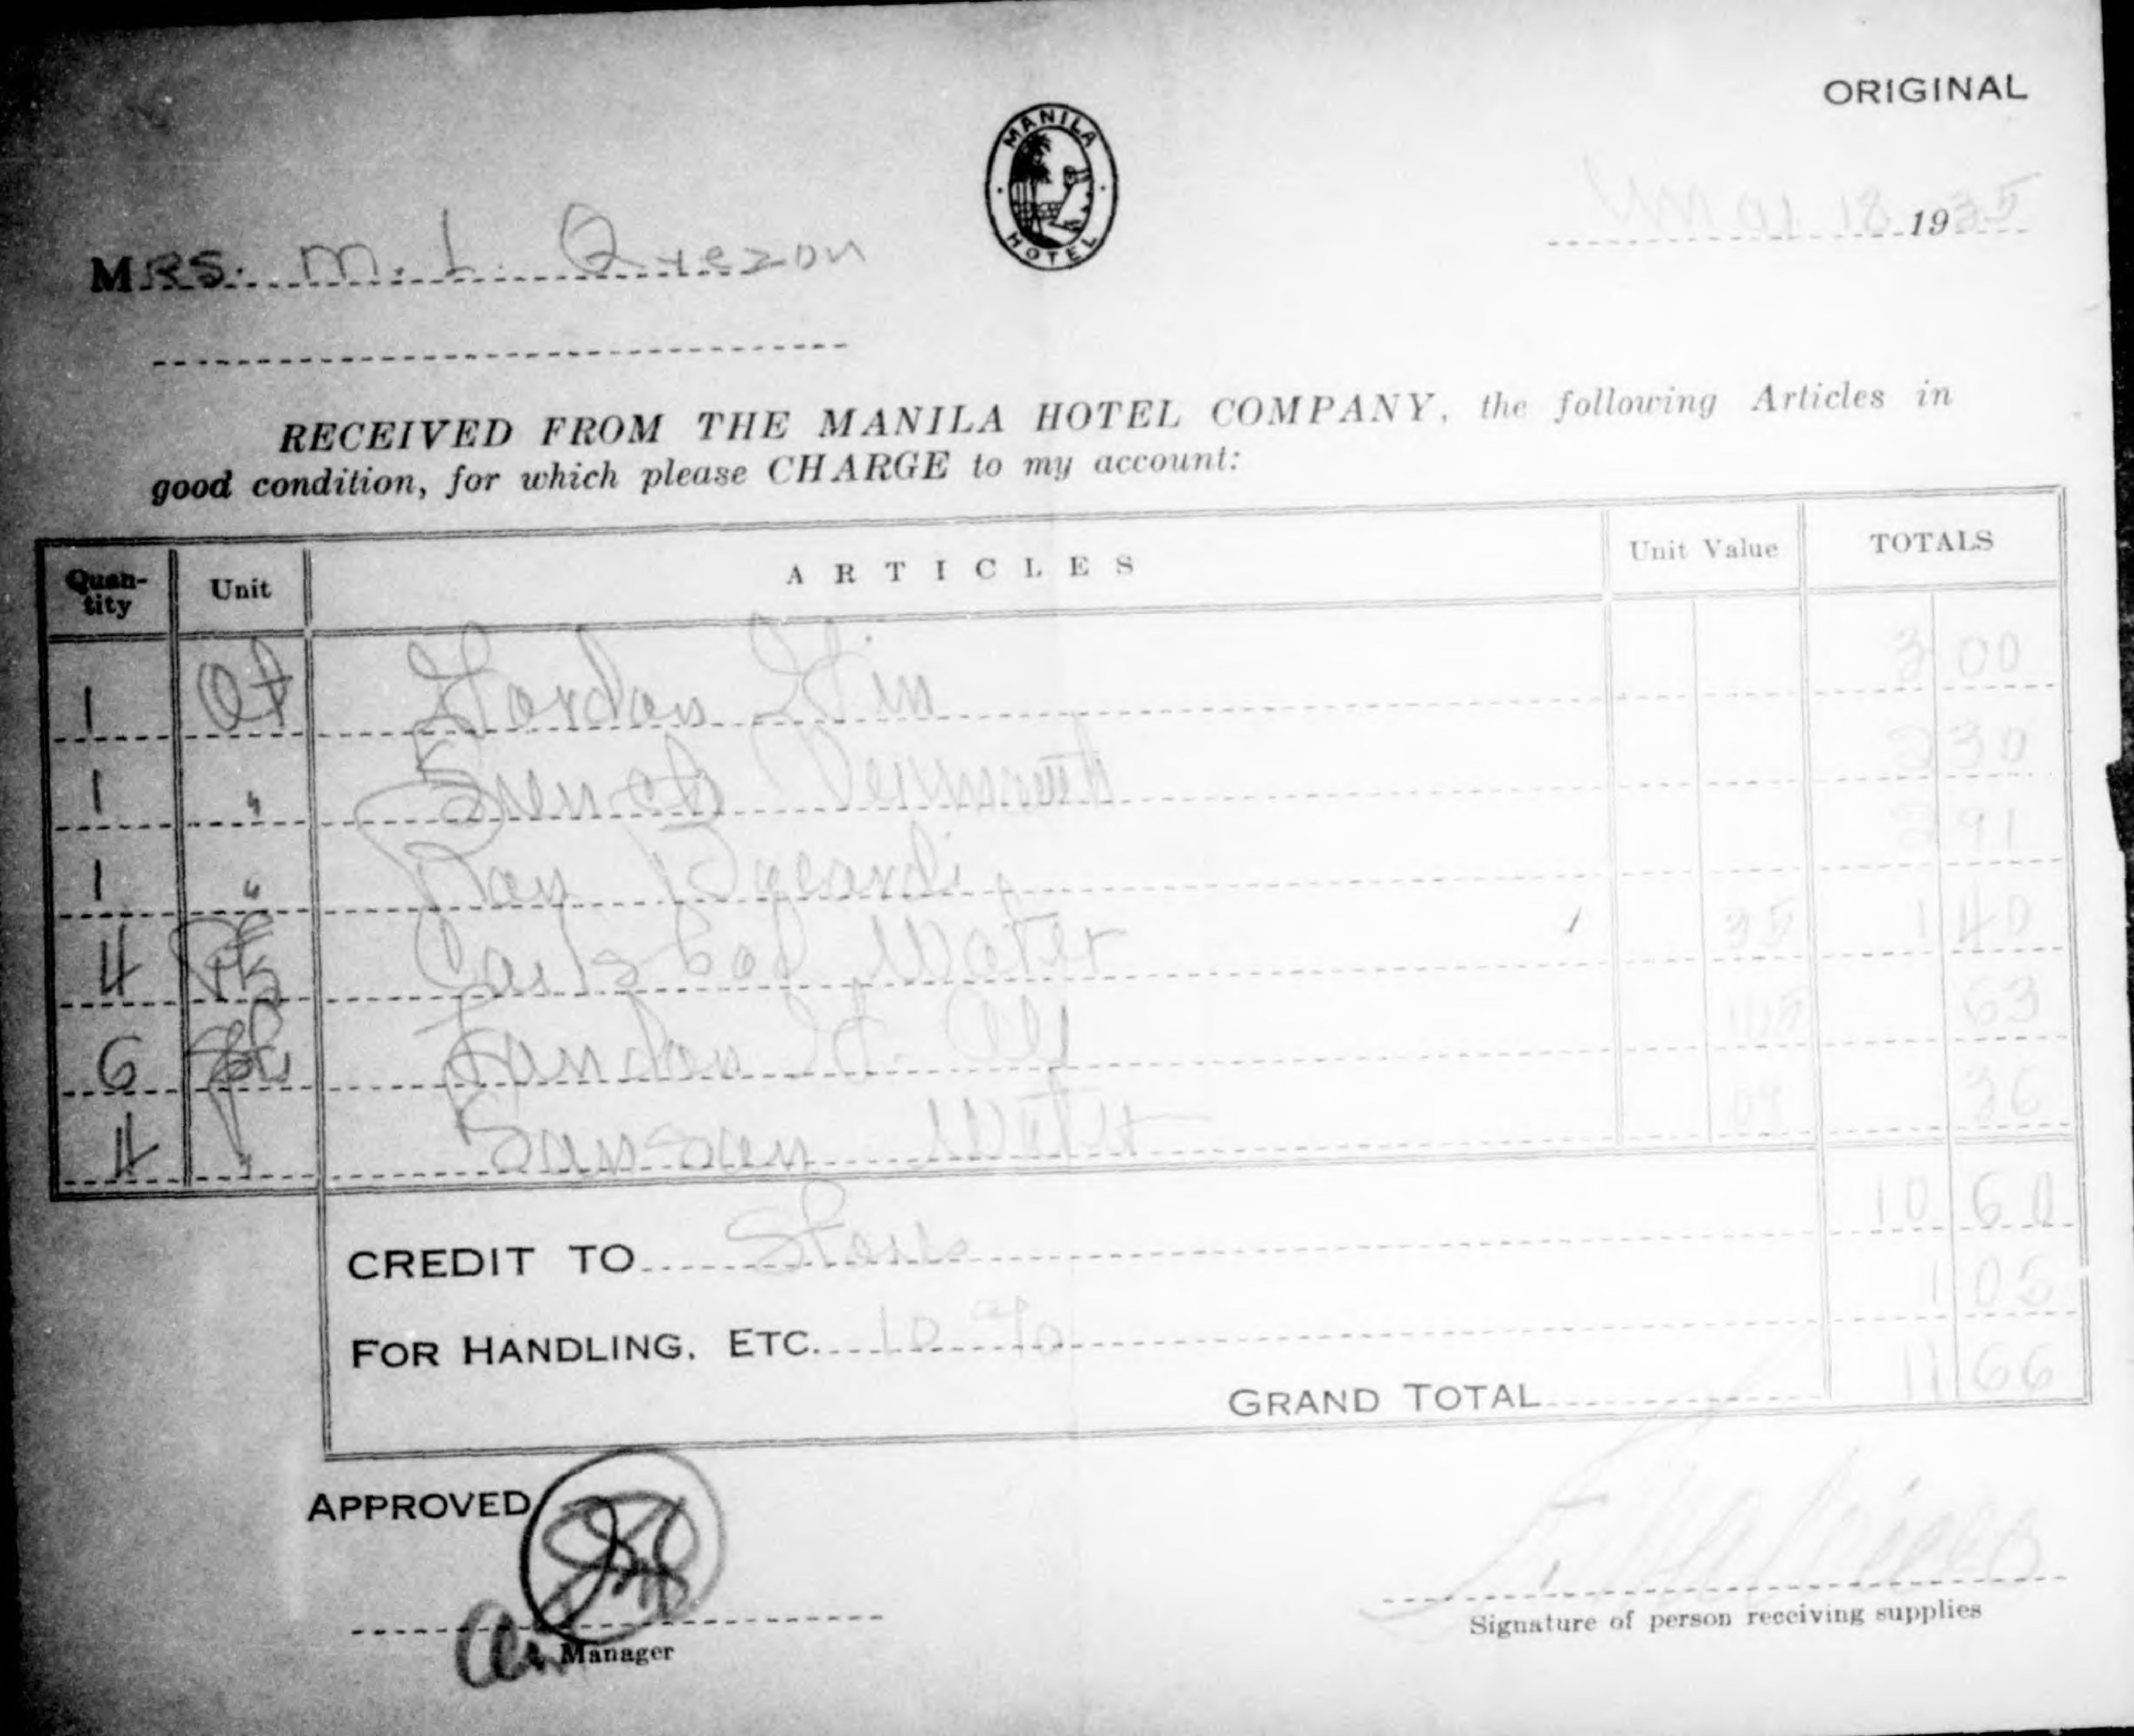 ORIGINAL
MANILA HOTEL
Mar 18 1935
MRS. M. L. Quezon
RECEIVED FROM THE MANILA HOTEL COMPANY, the following Articles in
good condition, for which please CHARGE to my account:
Quan-tity Unit ARTICLES Unit Value TOTALS
1 Qt Gordon Gin 3 00
1 " French Vermouth 2 30
1 " Ron Bacardi 2 91
4 Carlsbad Water 35 1 40
6 G. Ale 63
4 Water 09 36
10 60
CREDIT TO
1 06
FOR HANDLING, ETC. 10 %
GRAND TOTAL 11 66
APPROVED
Manager
Signature of person receiving supplies